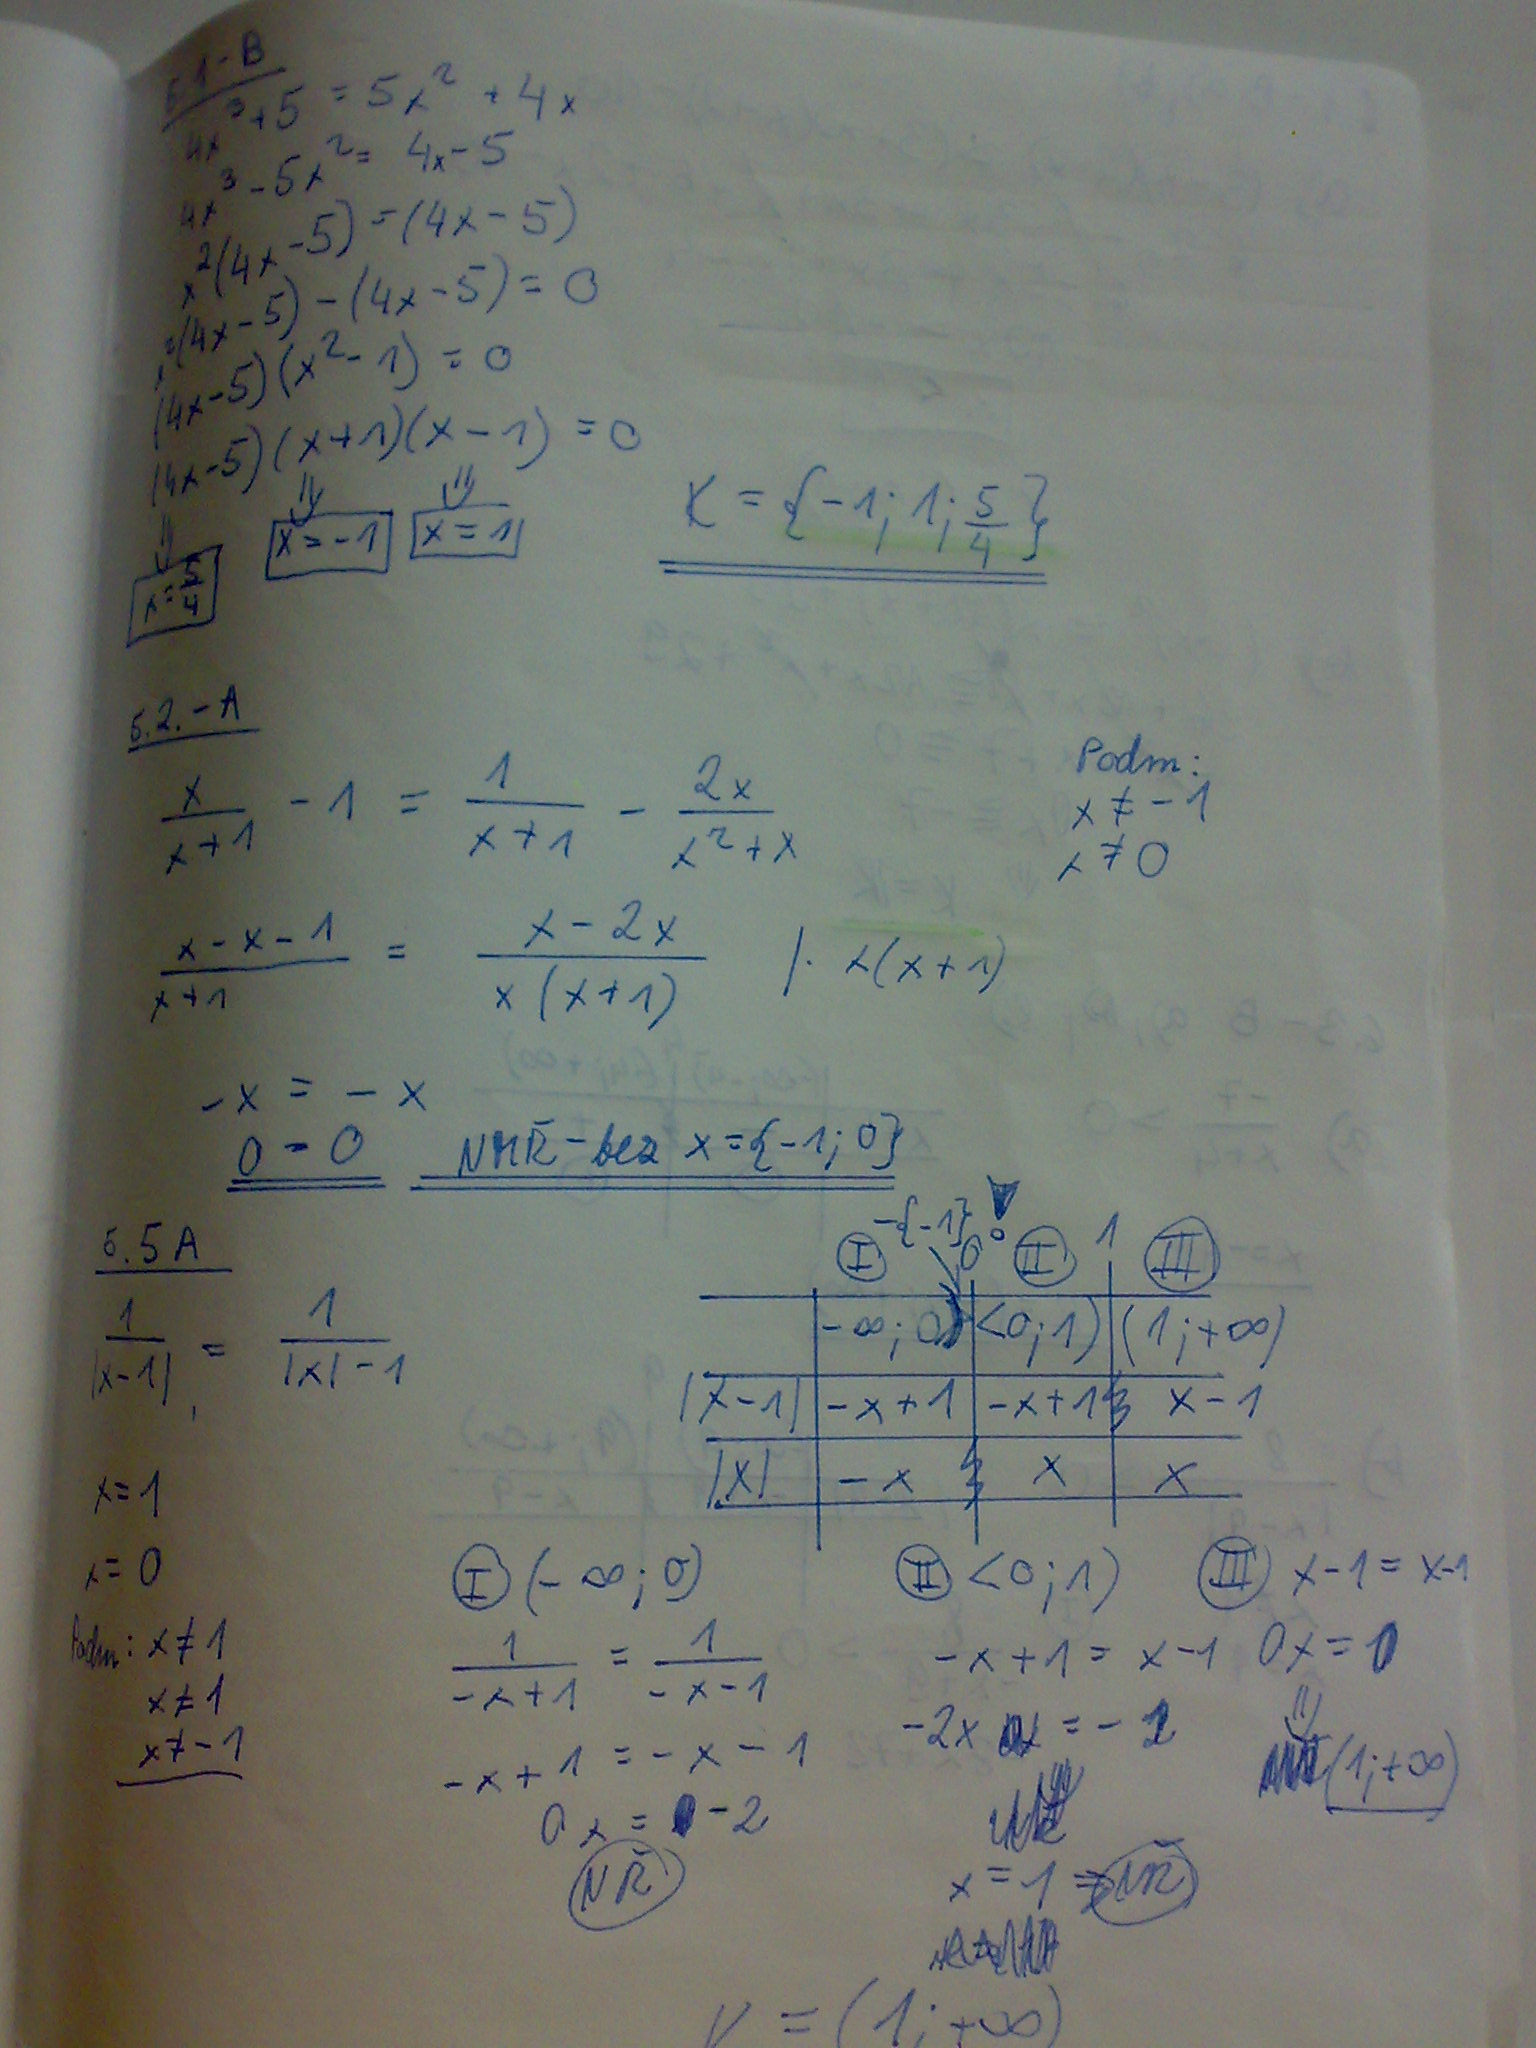 6.1-B
4x³+5 = 5x² + 4x
4x³-5x² = 4x-5
x²(4x-5) = (4x-5)
x²(4x-5) - (4x-5) = 0
(4x-5)(x²-1) = 0
(4x-5)(x+1)(x-1) = 0
x=5/4 x=-1 x=1
K = {-1; 1; 5/4}
6.2.-A
x/(x+1) - 1 = 1/(x+1) - 2x/(x²+x)
Podm:
x ≠ -1
x ≠ 0
(x-x-1)/(x+1) = (x-2x)/(x(x+1)) /· x(x+1)
-x = -x
0 = 0 NMŘ - bez x={-1; 0}
6.5A
1/|x-1| = 1/(|x|-1)
x=1
x=0
Podm: x≠1
x≠1
x≠-1
-{-1} !
I 0 II 1 III
-∞; 0) <0;1) (1;+∞)
|x-1| -x+1 -x+1 x-1
|x| -x x x
I (-∞; 0)
1/(-x+1) = 1/(-x-1)
-x+1 = -x-1
0x = -2
NŘ
II <0;1)
-x+1 = x-1
-2x = -2
x=1 ⇒ NŘ
III x-1 = x-1
0x = 0
(1;+∞)
K = (1;+∞)